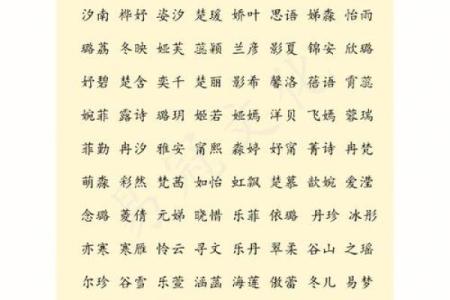 汐南 桦妤 姿汐 楚瑗 娇叶 思语 娣淼 怡雨
璐荔 冬映 娅芙 蕊颖 兰彦 影夏 锦安 欣璐
妤碧 楚含 奕千 楚丽 影希 馨洛 蓓语 霄蕊
婉菲 露诗 璐玥 姬若 娅嫣 洋贝 飞嫣 蓉瑞
菲勤 冉汐 雅安 甯熙 淼婷 妤甯 菁诗 冉梵
萌淼 彩然 梵茜 如怡 虹飘 楚慕 歆婉 爱滢
念璐 菱倩 元娣 晓惜 乐菲 依璐 丹珍 冰彤
亦寒 寒雁 怜云 寻文 乐丹 翠柔 谷山 之瑶
尔珍 谷雪 乐萱 涵菡 海莲 傲蕾 冬儿 易梦